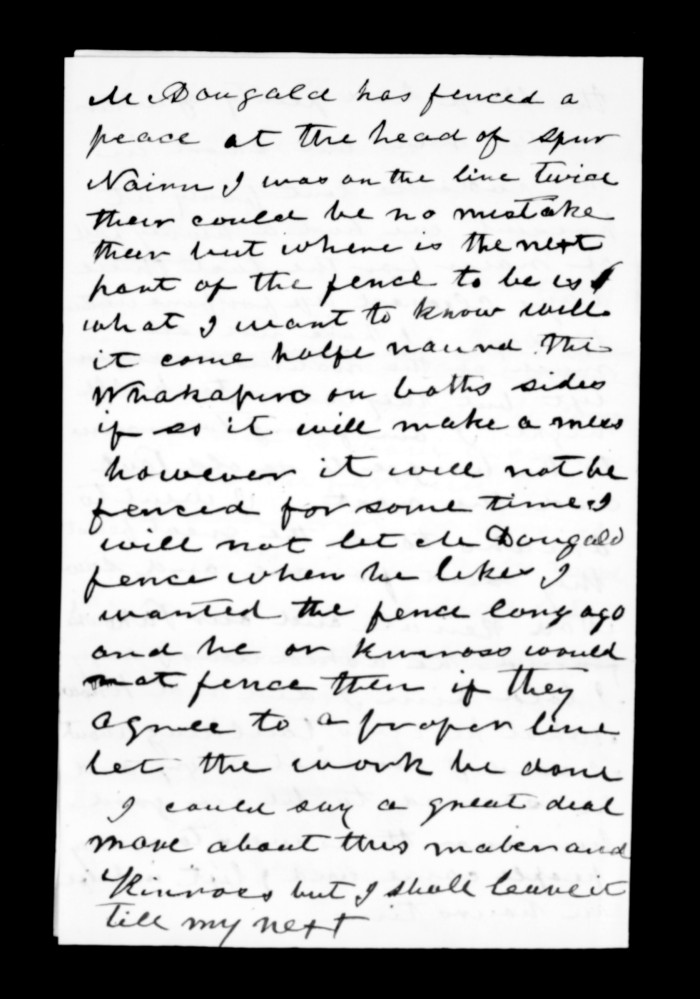 McDougald has fenced a
peace at the head of spur
Nairn I was on the line twice
their could be no mistake
their but where is the next
part of the fence to be is
what I want to know will
it come holfe naund the
Whakapiro on boths sides
if so it will make a mess
however it will not be
fenced for some time I
will not let McDougald
fence when he likes I
wanted the fence long ago
and he or Kinross would
not fence then if they
agree to a proper line
let the work be done
I could say a great deal
more about this maker and
Kinross but I shall leave it
till my next